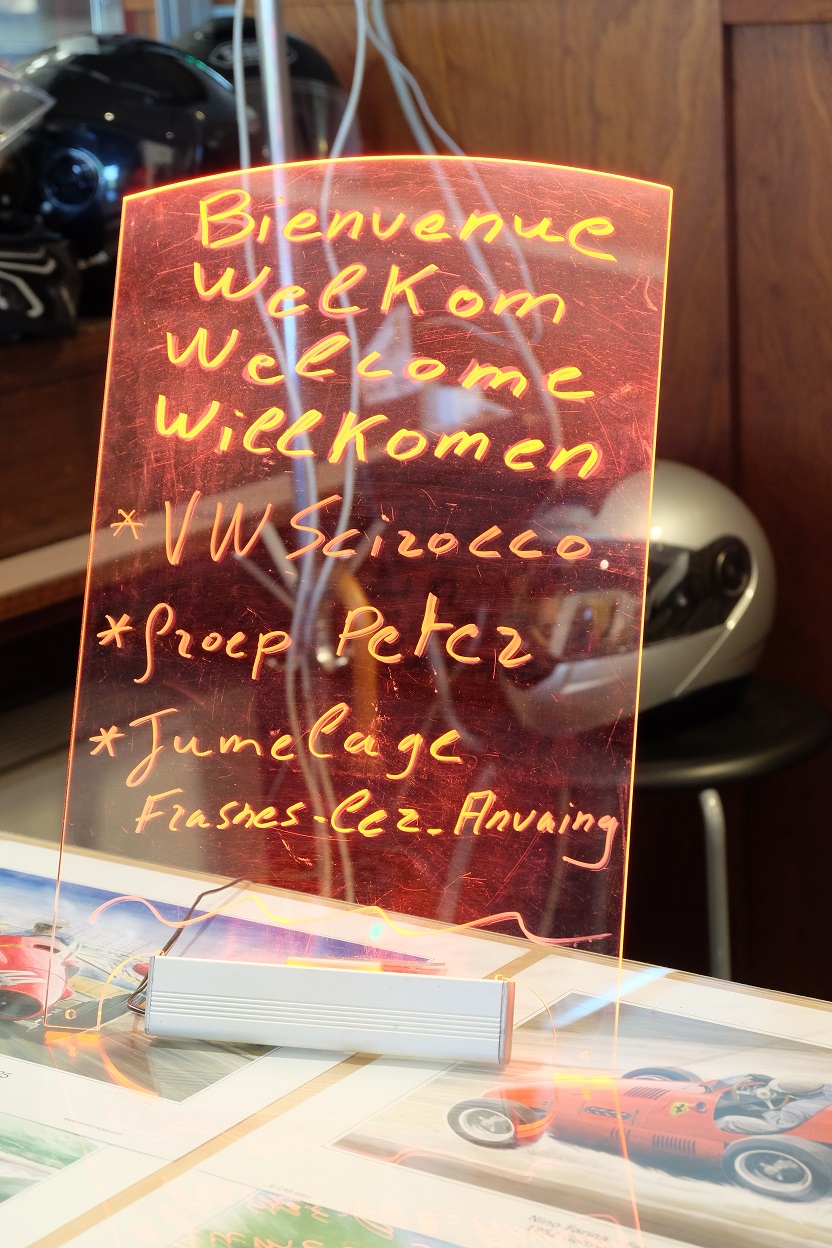 Bienvenue
Welkom
Welcome
Willkomen
* VW Scirocco
* Groep Peter
* Jumelage
Frasnes-lez-Anvaing
Nino Farina